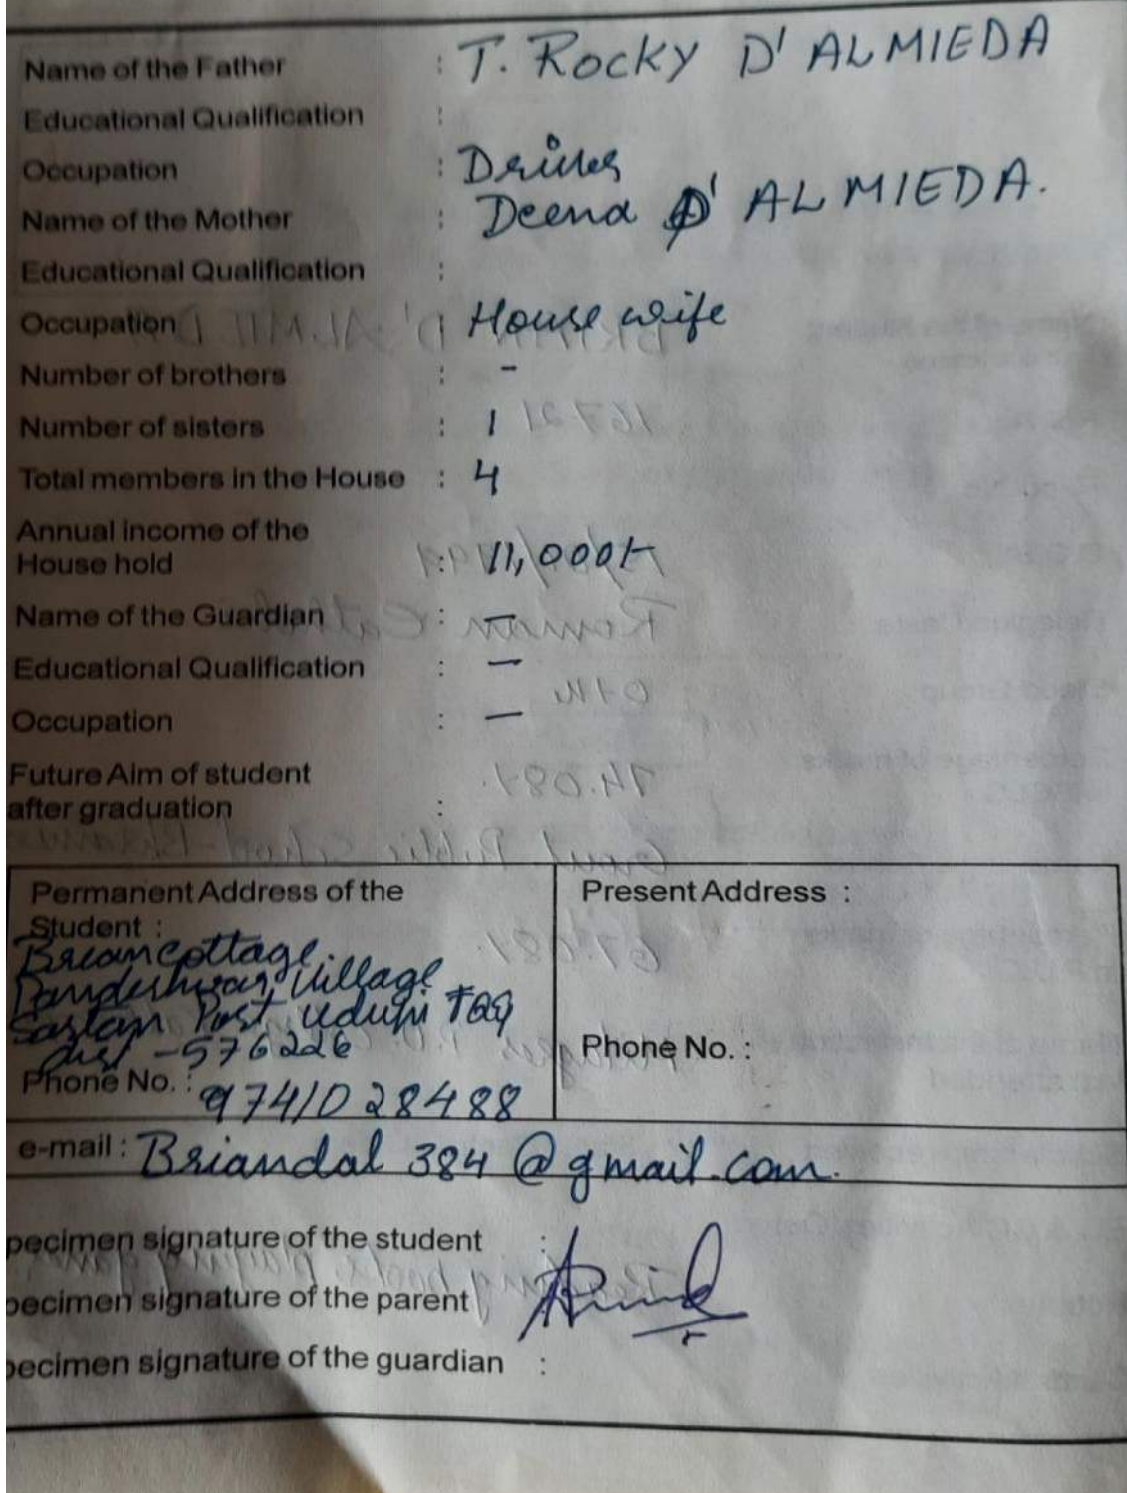 Name of the Father : T. ROCKY D' ALMIEDA
Educational Qualification :
Occupation : Driver
Name of the Mother : Deena D' ALMIEDA.
Educational Qualification :
Occupation : House wife
Number of brothers : -
Number of sisters : 1
Total members in the House : 4
Annual income of the
House hold : 11,000/-
Name of the Guardian : —
Educational Qualification : —
Occupation : —
Future Aim of student
after graduation :
Permanent Address of the
Student :
Brian Cottage.
Pandeshwar, Village
Sastan Post Udupi Taq
dist -576226
Phone No. : 9741028488
Present Address :
Phone No. :
e-mail : Briandal 384 @ gmail.com.
pecimen signature of the student :
pecimen signature of the parent
pecimen signature of the guardian :